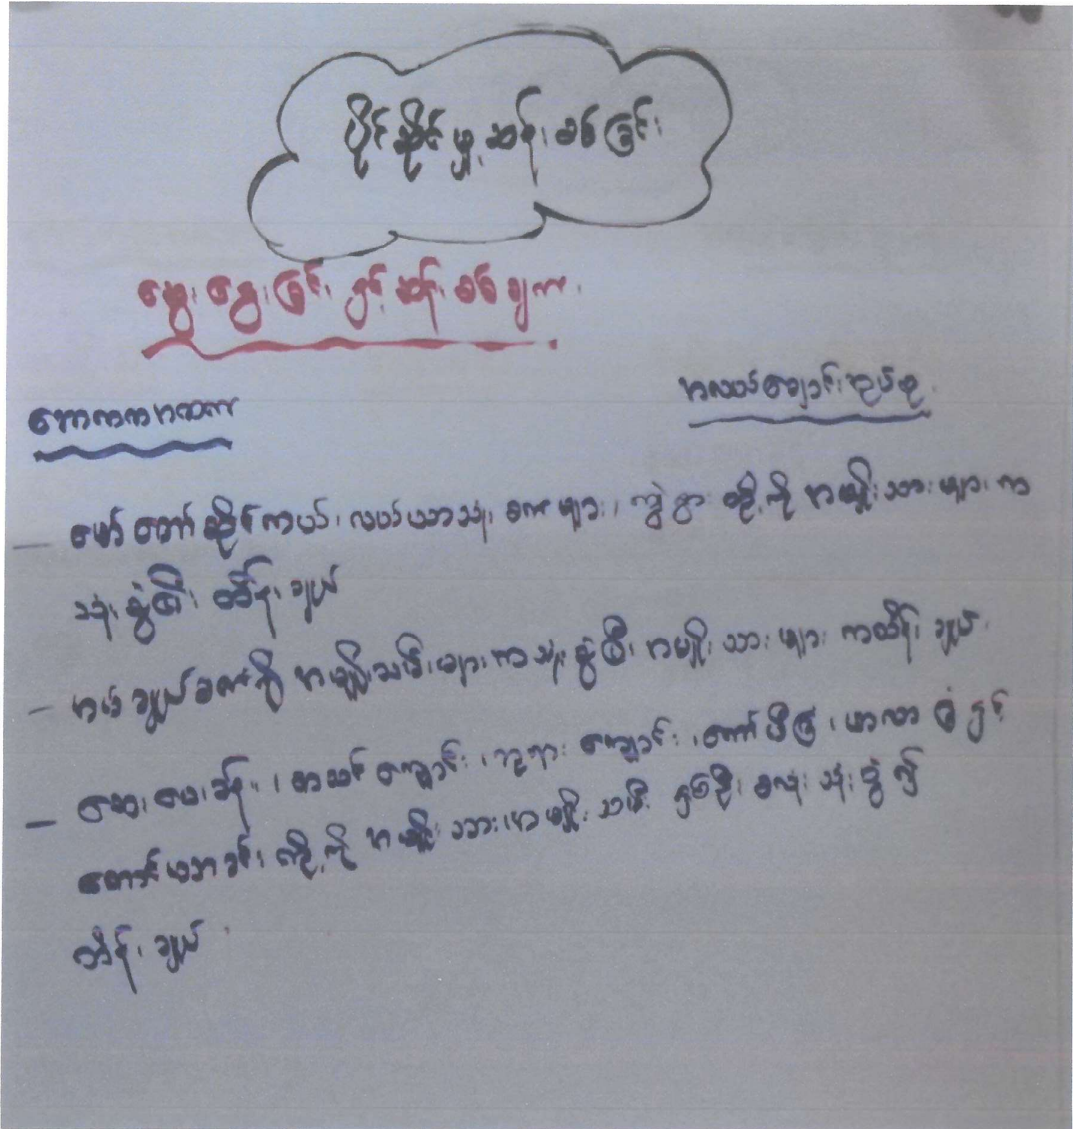 ပိုင်ဆိုင်မှုဆန်းစစ်ခြင်း
ဆွေးနွေးခြင်းနှင့်ဆန်းစစ်ချက်
အလယ်ချောင်းအုပ်စု
မော်တော်ဆိုင်ကယ်၊ လယ်ယာသုံးစက်များ၊ ကျွဲ နွားတို့ကို အမျိုးသားများက
သုံးစွဲပြီး ထိန်းချုပ်
အပ်ချုပ်စက်ကို အမျိုးသမီးများကသုံးစွဲပြီး အမျိုးသားများကထိန်းချုပ်
ဆေးပေးခန်း၊ စာသင်ကျောင်း၊ ဘုရားကျောင်း၊ ကော်ဖီခြံ၊ မာလာခြံနှင့်
တောင်ယာခင်းတို့ကို အမျိုးသား၊ အမျိုးသမီး နှစ်ဦးစလုံးသုံးစွဲ၍
ထိန်းချုပ်